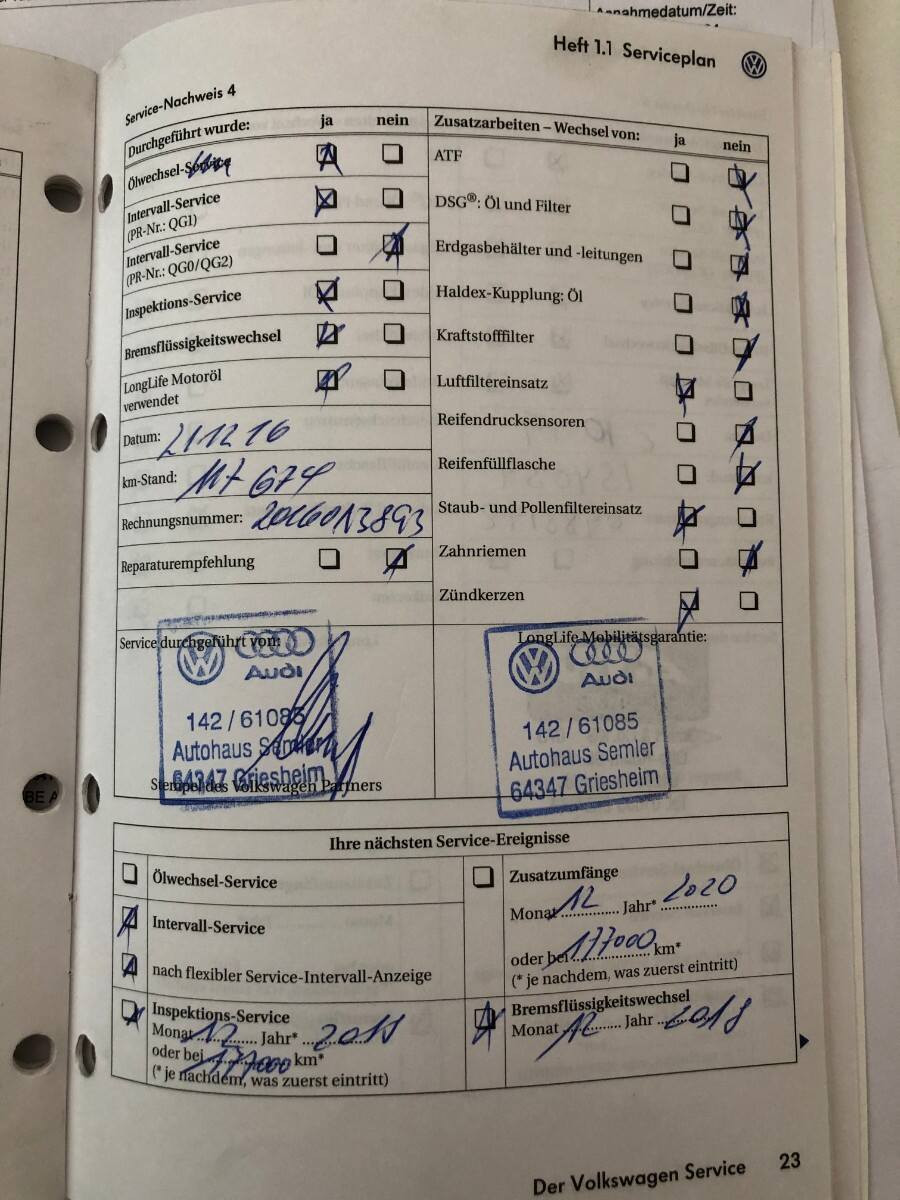 Annahmedatum/Zeit:
Heft 1.1 Serviceplan
Service-Nachweis 4
Durchgeführt wurde: ja nein
Ölwechsel-Service
Intervall-Service
(PR-Nr.: QG1)
Intervall-Service
(PR-Nr.: QG0/QG2)
Inspektions-Service
Bremsflüssigkeitswechsel
LongLife Motoröl
verwendet
Datum: 211216
km-Stand: 117 674
Rechnungsnummer: 2016013893
Reparaturempfehlung
Zusatzarbeiten – Wechsel von: ja nein
ATF
DSG®: Öl und Filter
Erdgasbehälter und -leitungen
Haldex-Kupplung: Öl
Kraftstofffilter
Luftfiltereinsatz
Reifendrucksensoren
Reifenfüllflasche
Staub- und Pollenfiltereinsatz
Zahnriemen
Zündkerzen
Service durchgeführt von:
Audi
142 / 61085
Autohaus Semler
64347 Griesheim
Stempel des Volkswagen Partners
LongLife Mobilitätsgarantie:
Audi
142 / 61085
Autohaus Semler
64347 Griesheim
Ihre nächsten Service-Ereignisse
Ölwechsel-Service
Intervall-Service
nach flexibler Service-Intervall-Anzeige
Inspektions-Service
Monat 12 Jahr* 2018
oder bei 177000 km*
(* je nachdem, was zuerst eintritt)
Zusatzumfänge
Monat 12 Jahr* 2020
oder bei 177000 km*
(* je nachdem, was zuerst eintritt)
Bremsflüssigkeitswechsel
Monat 12 Jahr 2018
Der Volkswagen Service 23